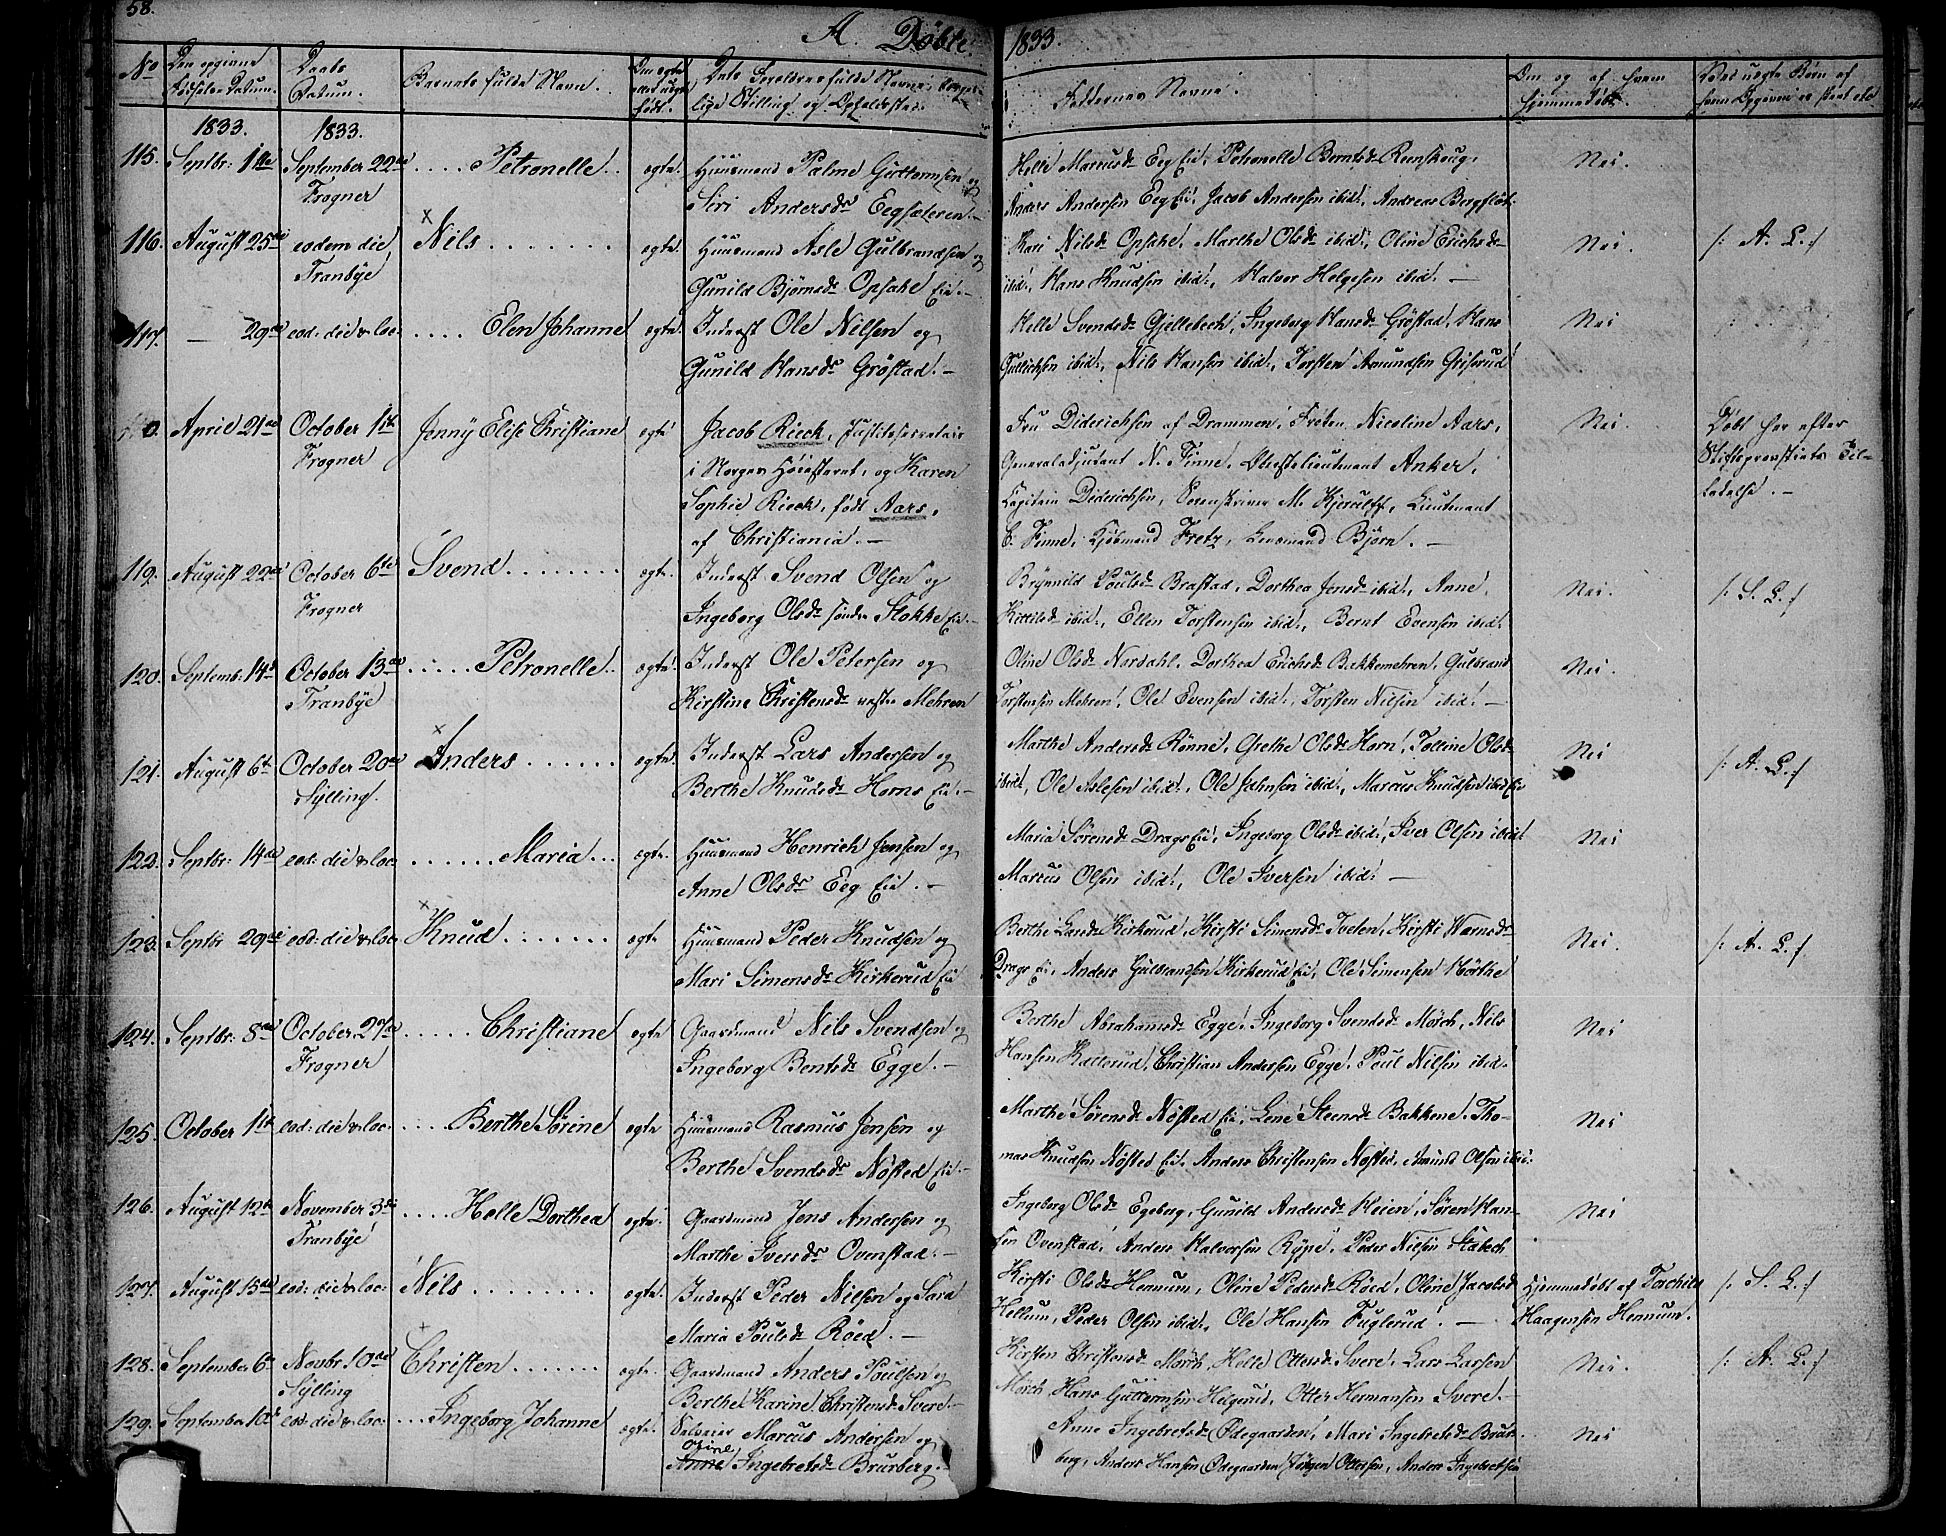 58.
A. Döbte. 1833.
No
Den opgivne Födsels-Datum.
Daabs Datum.
Barnets fulde Navn.
Om ægte eller uægte födt.
Dets Forældres fulde Navne, borgerlige Stilling og Opholdssted.
Faddernes Navne.
Om og af hvem hjemmedöbt.
1833. 1833.
115. Septbr: 1ste September 22de Frogner .... Petronelle ægte. Huusmand Palme Guttormsen og
Siri Andersdr Eegsæteren.
Helle Marcusdr Eeg Eie, Petronelle Berntsdr Renskoug,
Anders Andersen Eeg Eie, Jacob Andersen ibid:, Andreas Bergflöt.
Nei.
116. August 25de eodem die Tranbye × Nils ....... ægte. Huusmand Asle Gulbrandsen og
Gunild Björnsdr Opsahl Eie.
Kari Nilsdr Opsahl, Marthe Olsdr ibid:, Oline Erichsdr
ibid:, Hans Knudsen ibid:, Halvor Helgesen ibid:
Nei. /: A. L. :/
117. — 29de eod: die & loc: .... Elen Johanne ægte. Inderst Ole Nilsen og
Gunild Hansdr Gröstad.
Helle Svendsdr Gjellebech, Ingeborg Hansdr Gröstad, Hans
Gullichsen ibid:, Nils Hansen ibid:, Torsten Amundsen Griserud
Nei
April 21de October 1ste Frogner Jenny Elise Christiane ægte Jacob Rieck, Justitssecretair
i Norges Höiesteret, og Karen
Sophie Rieck, födt Aars,
af Christiania.
Fru Diderichsen af Drammen, Fröken Nicoline Aars,
Generaladjutant N. Finne, Oberstelieutenant Anker,
Capitain Diderichsen, Sorenskriver M. Kjerulff, Lieutenant
C. Finne, Kjöbmand Fretz, Lensmand Björn.
Nei.
Döbt her efter
Stiftsprovstiets Til-
ladelse.
119. August 22de October 6te Frogner Svend ........ ægte. Inderst Svend Olsen og
Ingeborg Olsdr söndre Stokke Eie.
Brynnild Poulsdr Brastad, Dorthea Jensdr ibid:, Anne
Kittilsdr ibid:, Ellen Torstensen ibid:, Bernt Evensen ibid:
Nei. /: S. L. :/
120. Septemb: 14de October 13de Tranbye ...... Petronelle .. ægte. Inderst Ole Petersen og
Kirstine Christensdr vestre Mehren
Oline Olsdr Nordahl, Dorthea Erichsdr Bakkemehren, Gulbrand
Torstensen Mehren, Ole Evensen ibid:, Torsten Nilsen ibid:
Nei.
121. August 6te October 20de Sylling. × Anders ...... ægte. Inderst Lars Andersen og
Berthe Knudsdr Horns Eie.
Marthe Andersdr Rönne, Grethe Olsdr Horn, Tolline Olsdr
ibid:, Ole Aslesen ibid:, Ole Johnsen ibid:, Marcus Knudsen ibid: Eie
Nei /: A. L. :/
122. Septbr: 14de eod: die & loc: ...... Maria ... ægte. Huusmand Henrich Jensen og
Anne Olsdr Eeg Eie.
Maria Sörensdr Drags Eie, Ingeborg Olsdr ibid:, Iver Olsen ibid:
Marcus Olsen ibid:, Ole Iversen ibid:
Nei
123. Septbr 29de eod: die & loc: × Knud ....... ægte Huusmand Peder Knudsen og
Mari Simensdr Kirkerud Eie
Berthe Larsdr Kirkerud, Kirsti Simensdr Tveten, Kirsti Warnsdr
Drags Eie, Anders Gulbrandsen Kirkerud Eie, Ole Simensen Hörthe
Nei. /: A. L. :/
124. Septbr: 8de October 27de Frogner ..... Christiane ægte. Gaardmand Nils Svendsen og
Ingeborg Bentsdr Egge.
Berthe Abrahamsdr Egge, Ingeborg Svendsdr Mörch, Nils
Hansen Kallerud, Christian Andersen Egge, Poul Nilsen ibid:
Nei
125. October 1ste eod: die & loc: .... Berthe Sörine ægte Huusmand Rasmus Jensen og
Berthe Svendsdr Nösted Eie.
Marthe Sörensdr Nösted Eie, Lene Steensdr Bakkene, Tho-
mas Knudsen Nösted Eie, Anders Christensen Nösted, Amund Olsen ibid:
Nei
126. August 12te November 3die Tranbye .... Helle Dorthea ægte. Gaardmand Jens Andersen og
Marthe Iversdr Ovenstad.
Ingeborg Olsdr Egeberg, Gunild Andersdr Heien, Sören Han-
sen Ovenstad, Anders Halvorsen Rype, Peder Nilsen Stabech
Nei
127. August 15de eod: die & loc: Nils ........ ægte. Inderst Peder Nilsen og Sara
Maria Poulsdr Röed.
Kirsti Olsdr Hennum, Oline Pedersdr Röed, Oline Jacobsdr
Hellum, Peder Olsen ibid:, Ole Hansen Fuglerud.
Hjemmedöbt af Torchild
Haagensen Hennum. /: S. L. :/
128. September 6te Novbr 10de Sylling + Christen ....... ægte. Gaardmand Anders Poulsen og
Berthe Karine Christensdr Svere.
Kirsten Christensdr Mörch, Helle Ottersdr Svere, Lars Larsen
Mörch, Hans Guttormsen Helgerud, Otter Hermansen Svere.
Nei. /: A. L. :/
129. September 10de eod: die & loc: ... Ingeborg Johanne ægte. Marcus Andersen og
Anne Ingebretsdr Brurberg.
Anne Ingebretsdr Ödegaarden, Mari Ingebretsdr Brur-
berg, Anders Hansen Ödegaarden, Jörgen Ottersen, Anders Ingebretsen
Nei